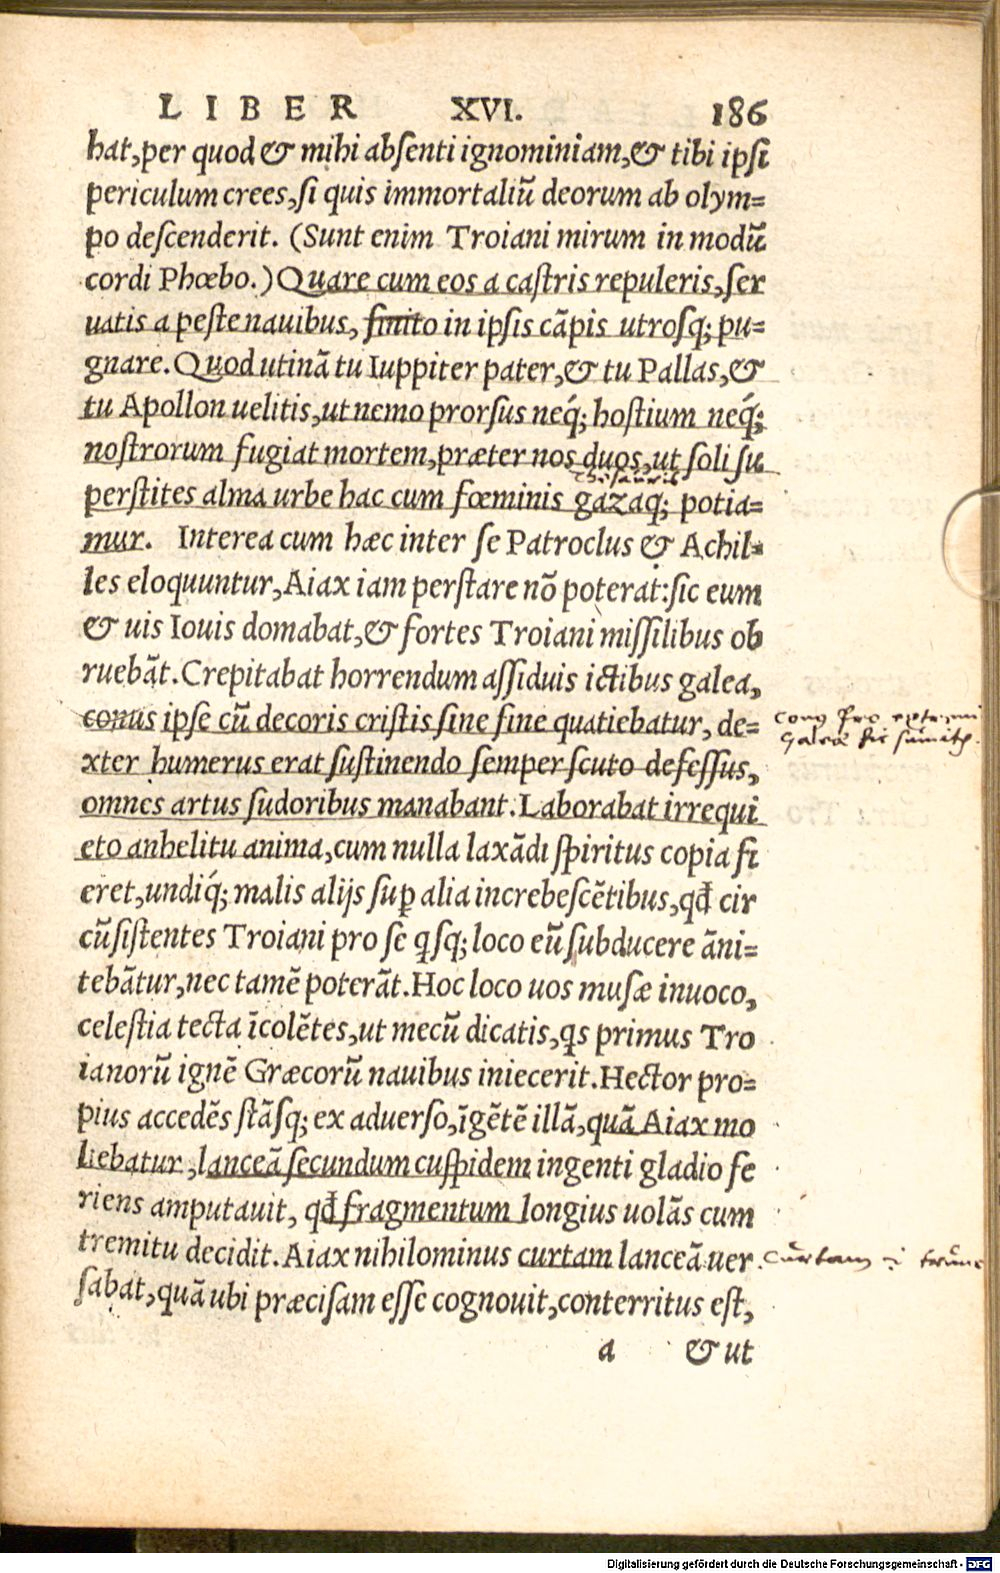 LIBER XVI. 186
hat, per quod & mihi absenti ignominiam, & tibi ipsi
periculum crees, si quis immortaliū deorum ab olym=
po descenderit. (Sunt enim Troiani mirum in modū
cordi Phœbo.) Quare cum eos a castris repuleris, ser
uatis a peste nauibus, sinito in ipsis cāpis utrosq; pu=
gnare. Quod utinā tu Iuppiter pater, & tu Pallas, &
tu Apollon uelitis, ut nemo prorsus neq́; hostium neq́;
nostrorum fugiat mortem, præter nos duos, ut soli su
perstites alma urbe hac cum fœminis gazaq; potia=
mur. Interea cum hæc inter se Patroclus & Achil=
les eloquuntur, Aiax iam perstare nō poterat: sic eum
& uis Iouis domabat, & fortes Troiani missilibus ob
ruebāt. Crepitabat horrendum assiduis ictibus galea,
conus ipse cū decoris cristis sine fine quatiebatur, de=
xter humerus erat sustinendo semper scuto defessus,
omnes artus sudoribus manabant. Laborabat irrequi
eto anhelitu anima, cum nulla laxādi spiritus copia fi
eret, undiq́; malis alijs sup̱ alia increbescētibus, qđ cir
cūsistentes Troiani pro se q̱sq; loco eū subducere āni=
tebātur, nec tamē poterāt. Hoc loco uos musæ inuoco,
celestia tecta īcolētes, ut mecū dicatis, q̱s primus Tro
ianorū ignē Græcorū nauibus iniecerit. Hector pro=
pius accedēs stāsq; ex aduerso, īgētē illā, quā Aiax mo
liebatur, lanceā secundum cuspidem ingenti gladio fe
riens amputauit, qđ fragmentum longius uolās cum
tremitu decidit. Aiax nihilominus curtam lanceā uer
curtam
sabat, quā ubi præcisam esse cognouit, conterritus est,
a & ut
Digitalisierung gefördert durch die Deutsche Forschungsgemeinschaft - DFG